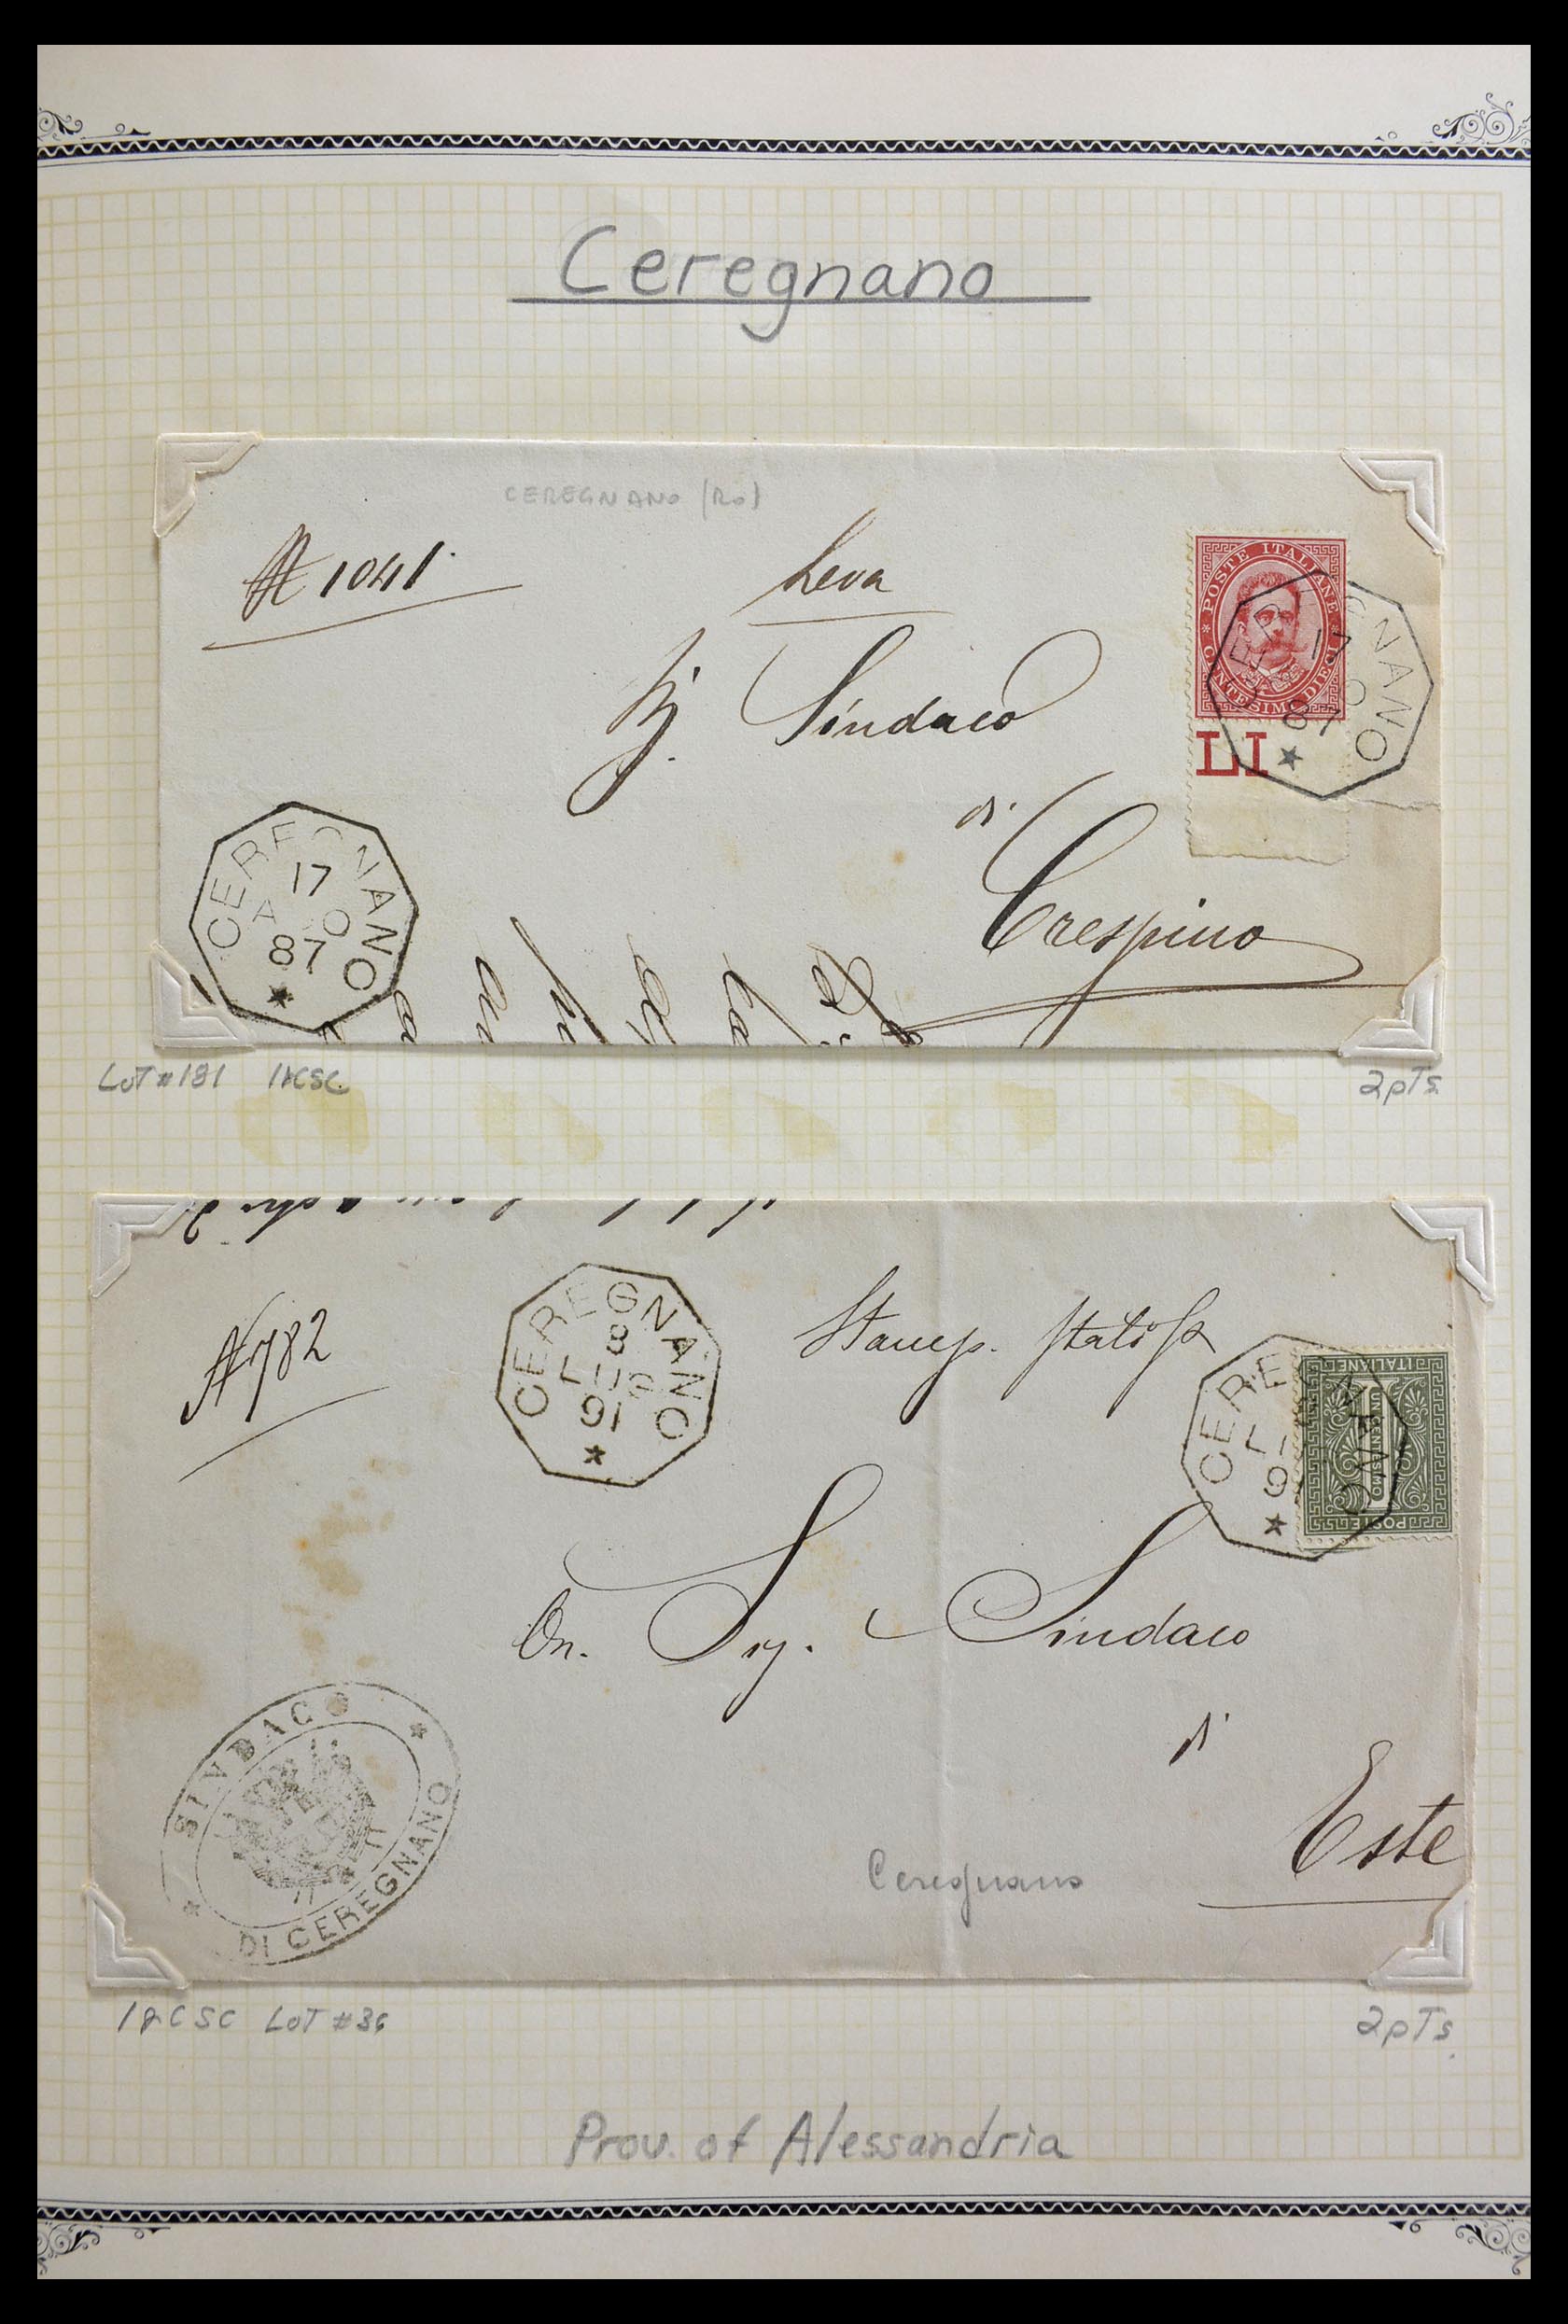 Ceregnano
CEREGNANO (Ro)
N 1041
Leva
POSTE ITALIANE
CENTESIMI DIECI
LI
CEREGNANO
17
87
Sindaco
di
Crespino
CEREGNANO
17
A O
87
LOT #181
2pTs
N 782
CEREGNANO
8
LUG
91
Stamp.
CERE NANO
9
POSTE ITALIANE
UN CENTESIMO
On. Sig. Sindaco
di
Este
SINDACO
DI CEREGNANO
Ceregnano
CSC LOT #36
2pTs.
Prov. of Alessandria